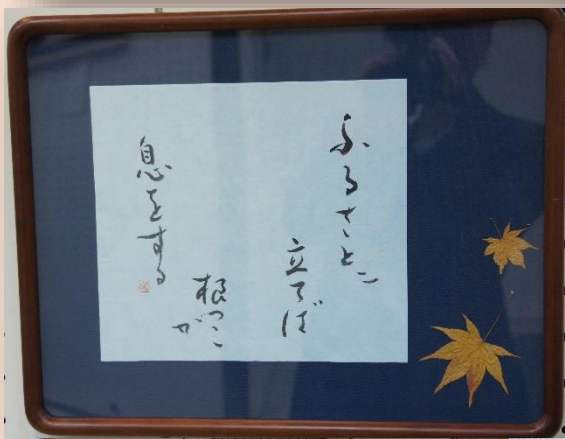 ふるさとに
立てば
根っこ
が
息をする